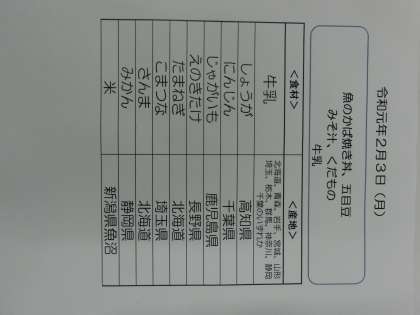 令和元年2月3日（月）
魚のかば焼き料、五目豆
みそ汁、くだもの
牛乳
＜食材＞ ＜産地＞
牛乳 北海道、青森、岩手、宮城、山形
埼玉、栃木、群馬、神奈川、静岡
千葉のいずれか
しょうが 高知県
にんじん 千葉県
じゃがいも 鹿児島県
えのきだけ 長野県
たまねぎ 北海道
こまつな 埼玉県
さんま 北海道
みかん 静岡県
米 新潟県魚沼